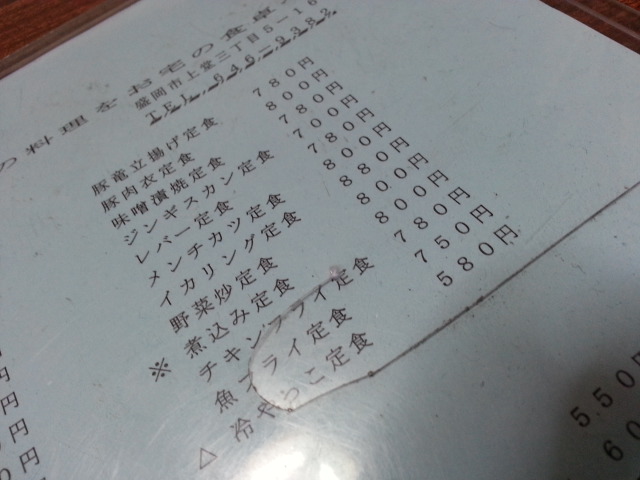 の料理をお宅の食卓
盛岡市上堂三丁目5－16
豚竜立揚げ定食 780円
豚肉衣定食 800円
味噌漬焼定食 780円
ジンギスカン定食 700円
レバー定食 780円
メンチカツ定食 800円
イカリング定食 880円
野菜炒定食 800円
※ 煮込み定食 800円
チキンフライ定食 780円
魚フライ定食 750円
△ 冷やっこ定食 580円
550
60
円
円
円
円